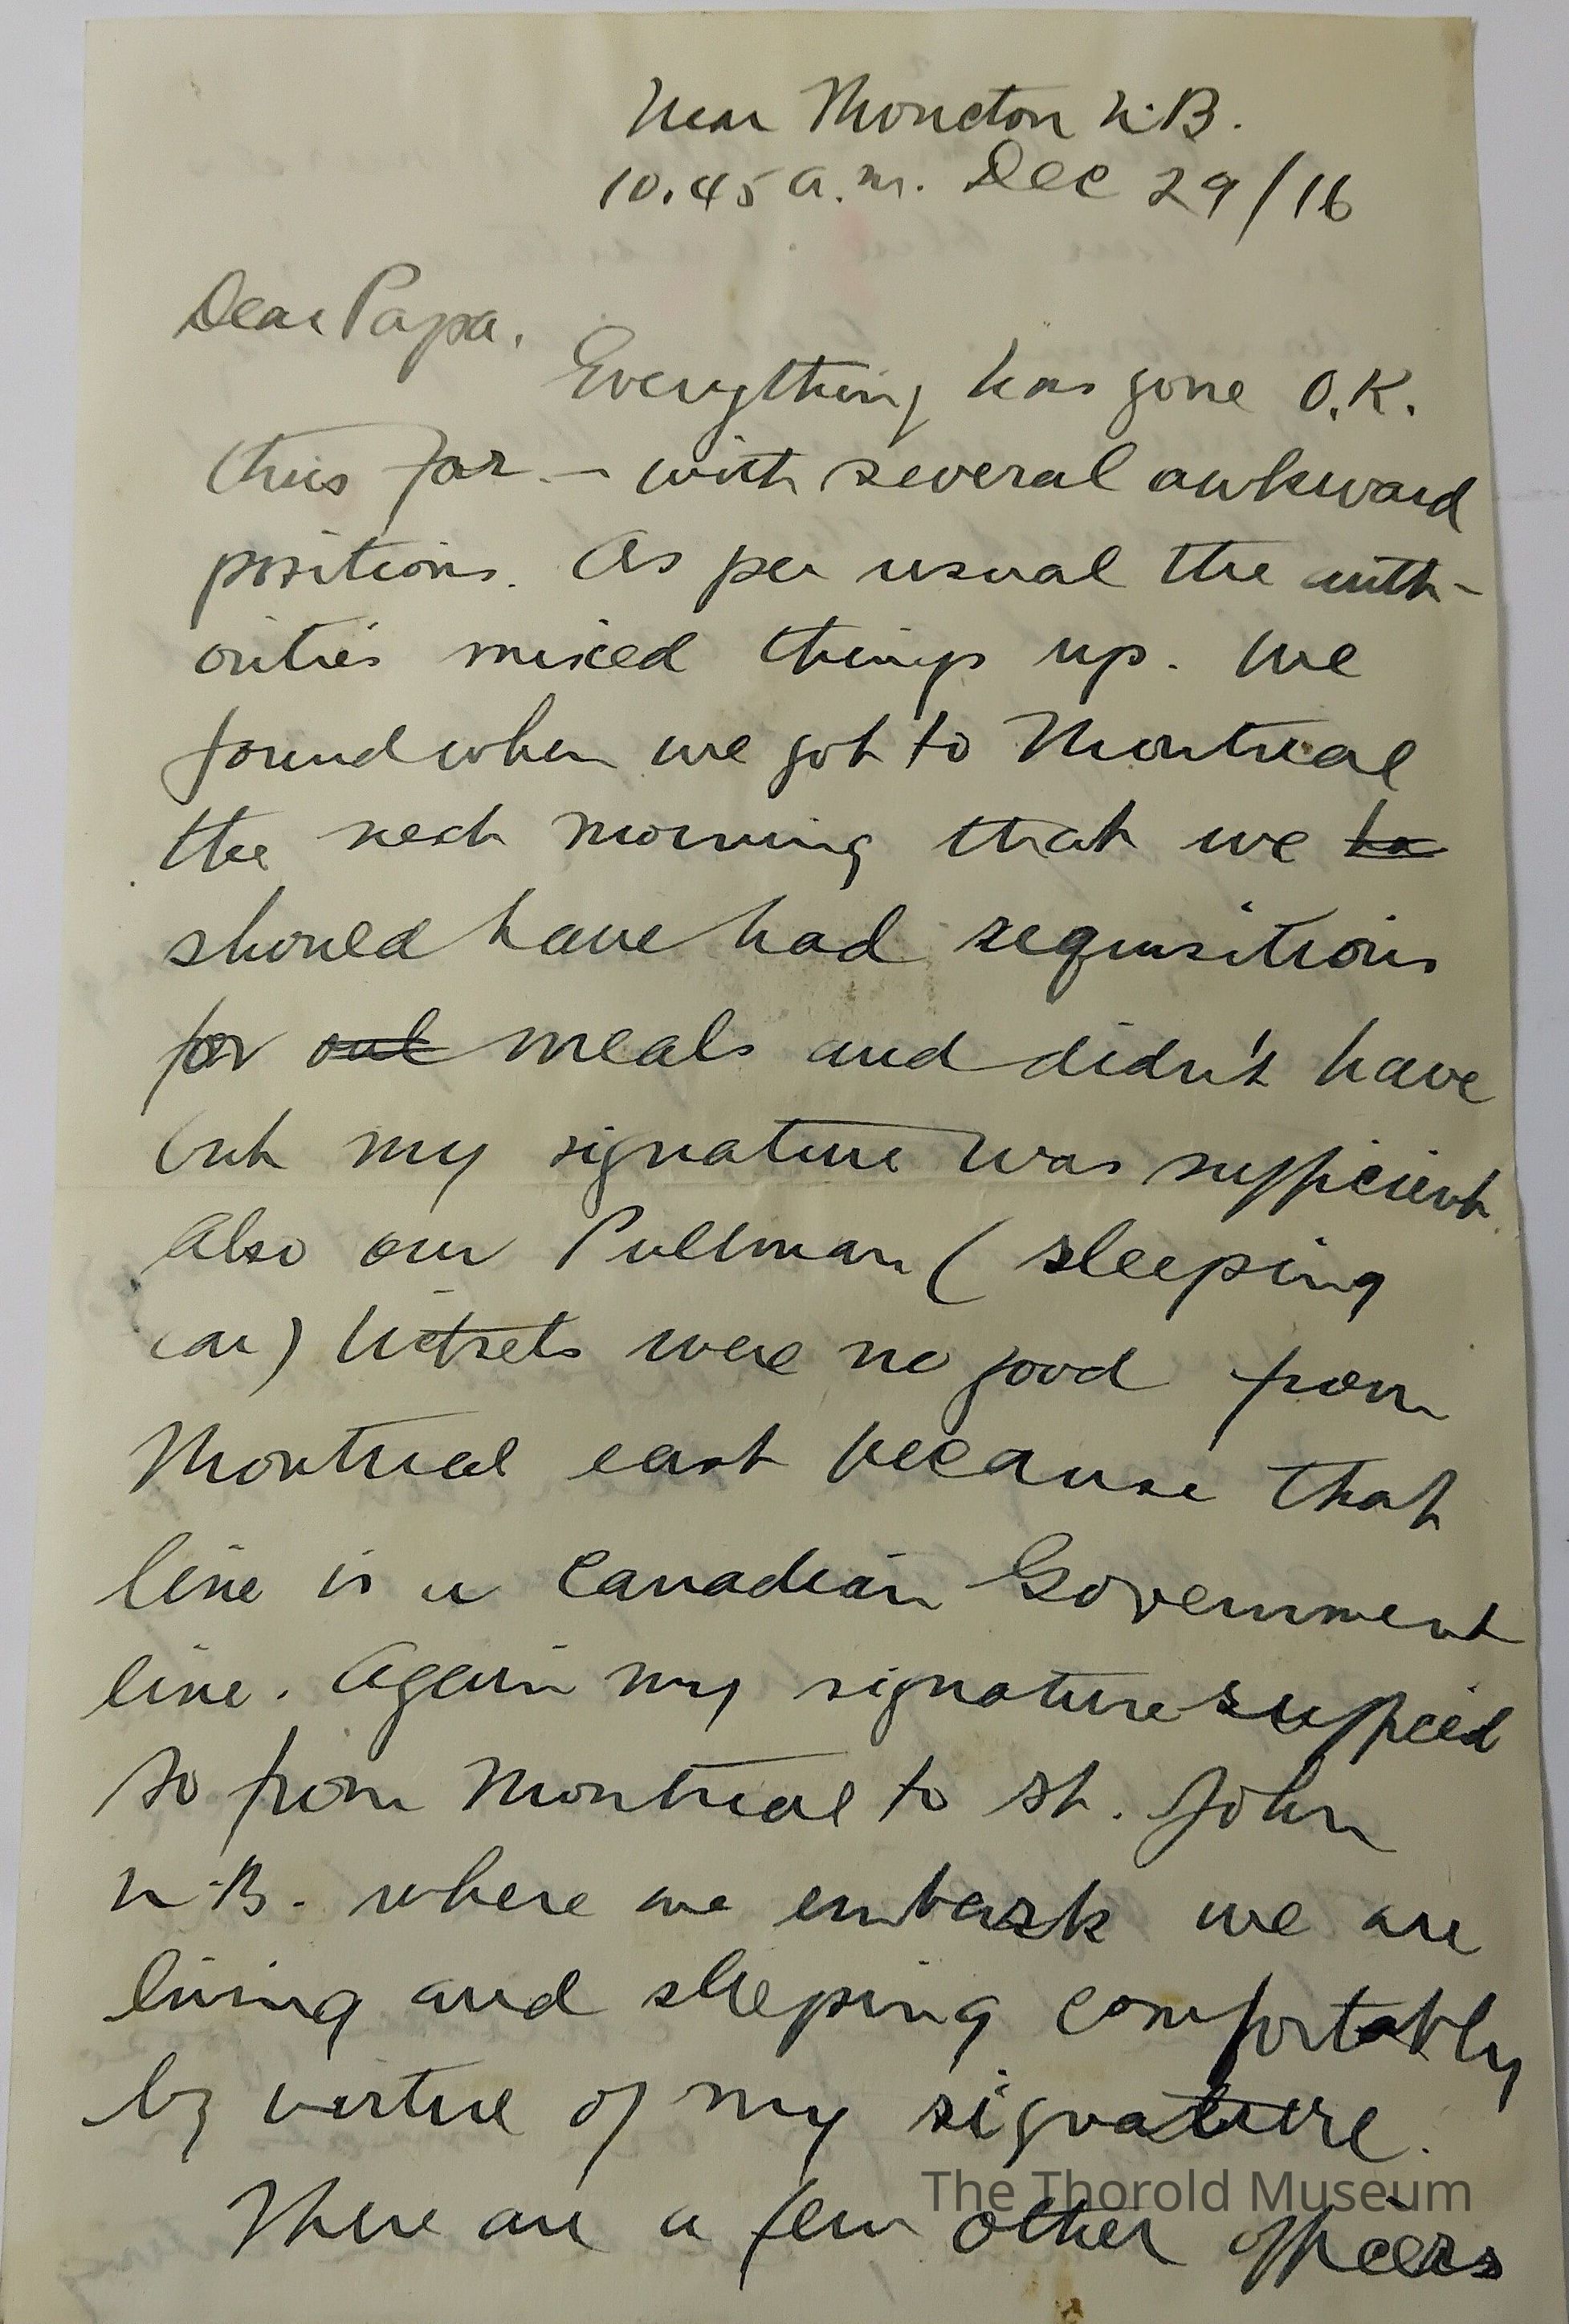 Near Moncton N.B.
10.45 a.m. Dec 29/16
Dear Papa.
Everything has gone O.K.
thus far - with several awkward
positions. As per usual the auth-
orities mixed things up. We
found when we got to Montreal
the next morning that we ha
should have had requisitions
for out meals and didn't have
but my signature was sufficient.
Also our Pullman (sleeping
car) tickets were no good from
Montreal east because that
line is a Canadian Government
line. Again my signature sufficed
so from Montreal to St. John
N.B. where we embark we are
living and sleeping comfortably
by virtue of my signature.
The Thorold Museum
There are a few other officers